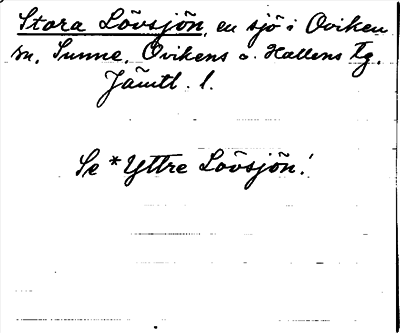 Stora Lövsjön, en sjö i Oviken
sn, Sunne, Ovikens o. Hallens tg,
Jämtl. l.
Se *Yttre Lövsjön!